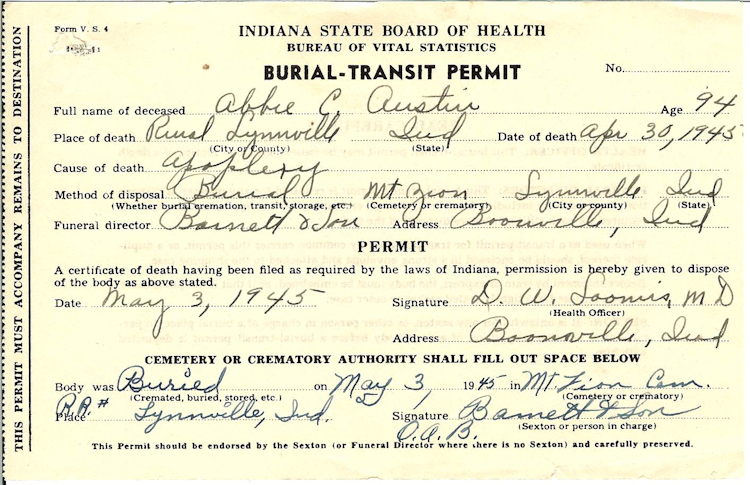 THIS PERMIT MUST ACCOMPANY REMAINS TO DESTINATION
Form V. S. 4
INDIANA STATE BOARD OF HEALTH
BUREAU OF VITAL STATISTICS
BURIAL-TRANSIT PERMIT
No.
Full name of deceased Abbie C. Austin Age 94
Place of death Rural Lynnville Ind Date of death Apr 30, 1945
(City or County) (State)
Cause of death Apoplexy
Method of disposal Burial Mt Zion Lynnville Ind
(Whether burial cremation, transit, storage, etc.) (Cemetery or crematory) (City or county) (State)
Funeral director Barnett & Son Address Boonville, Ind
PERMIT
A certificate of death having been filed as required by the laws of Indiana, permission is hereby given to dispose
of the body as above stated.
Date May 3, 1945 Signature D. W. Loomis, M D
(Health Officer)
Address Boonville, Ind
CEMETERY OR CREMATORY AUTHORITY SHALL FILL OUT SPACE BELOW
Body was Buried on May 3, 1945 in Mt. Zion Cem.
(Cremated, buried, stored, etc.) (Cemetery or crematory)
R.R. #
Place Lynnville, Ind. Signature Barnett & Son
(Sexton or person in charge)
O.A.B.
This Permit should be endorsed by the Sexton (or Funeral Director where there is no Sexton) and carefully preserved.